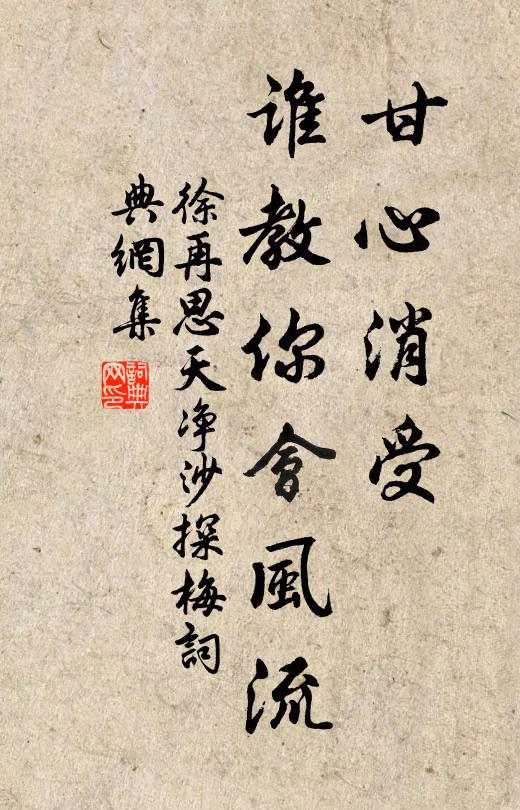 甘心消受
誰教你會風流
徐再思天净沙探梅詞
典網集
詞典網印